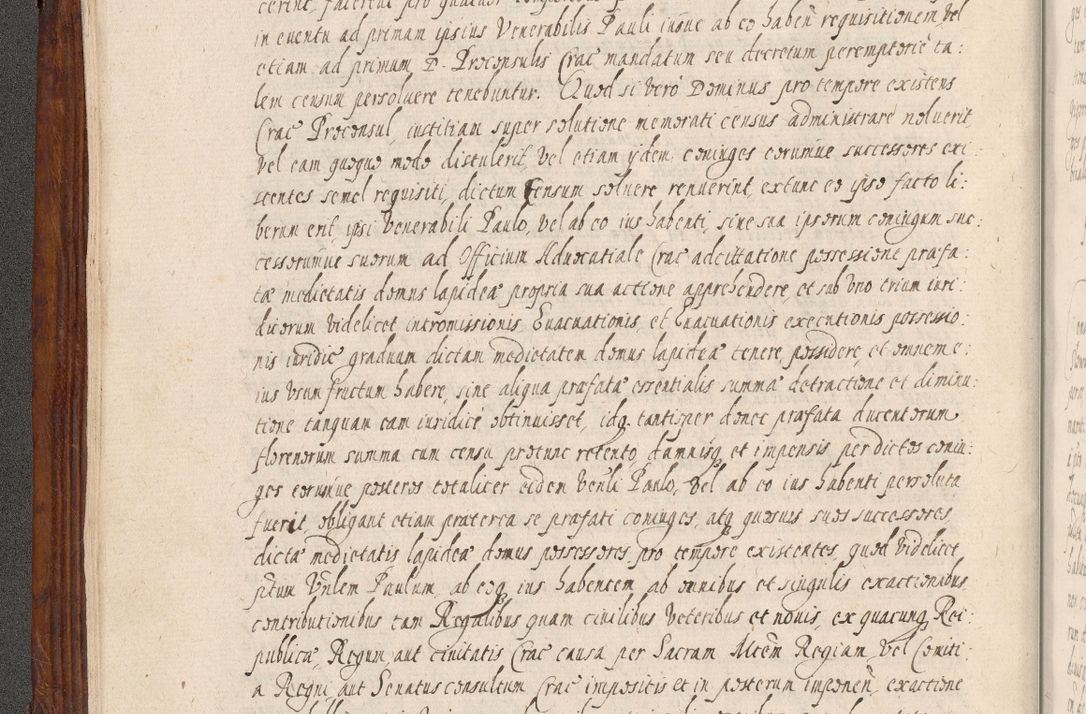 in eventu ad primam ipsius Venerabilis Pauli siue ab eo haben̄ requisitionem vel
etiam ad primum D. Proconsulis Crac̄ mandatum seu decretum peremptorie ta:
lem censum persoluere tenebuntur. Quod si verò Dominus pro tempore existens
Crac̄ Proconsul, iustitiam super solutione memorati census administrare noluerit
vel eam quoque modo distulerit, vel etiam ijdem coniuges eorumue successores exi:
stentes semel requisiti, dictum censum soluere renuerint, extunc eo ipso facto li:
berum erit, ipsi Venerabili Paulo, vel ab eo ius habenti, siue sua ipsorum coniugum suc:
cessorumue suorum ad Officium Aduocatiale Crac̄ adcitatione possessione præfa:
tæ medietatis domus lapideæ propria sua actione apprehendere, et sub vno trium iuri:
dicorum videlicet intromissionis, Euacuationis, et Euacuationis executionis possessio:
nis iuridicē graduum dictam medietatem domus lapideæ tenere, possidere, et omnem e:
ius vsum fructum habere, sine aliqua præfatæ essentialis summæ detractione et diminu:
tione tanquam eam iuridicè obtinuisset, idq. tantisper donec præfata ducentorum
florenorum summa cum censu protunc retento, damnisq. et impensis per dictos coniu:
ges eorumue posteros totaliter eidem Ven̄li Paulo, vel ab eo ius habenti persoluta
fuerit, obligant etiam præterea se præfati coniuges, atq. quosuis suos successores,
dictæ medietatis lapideæ domus possessores pro tempore existentes, quod videlicet
p̄tum Vn̄lem Paulum, ab eoq. ius habentem, ab omnibus et singulis exactionibus
contributionibus tam Regalibus quam ciuilibus veteribus et nouis, ex quacunq. Rei:
publicæ, Regum, aut ciuitatis Crac̄ causa per Sacram Mtem̄ Regiam, vel Comiti:
a Regni, aut Senatus consultum Crac̄ impositis et in posterum imponen̄, exactione